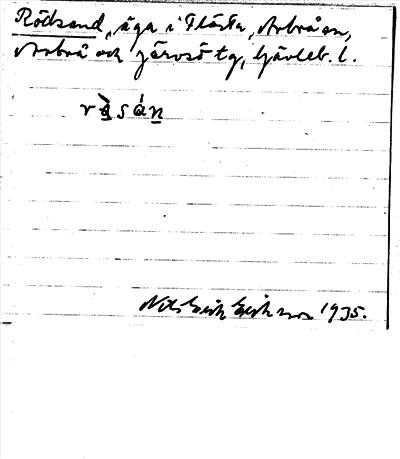 Rödsand, äga i Flästa, Arbråsn,
Arbrå och Järvsö tg, Gävleb. l.
Nils Erik Eriksson 1935.